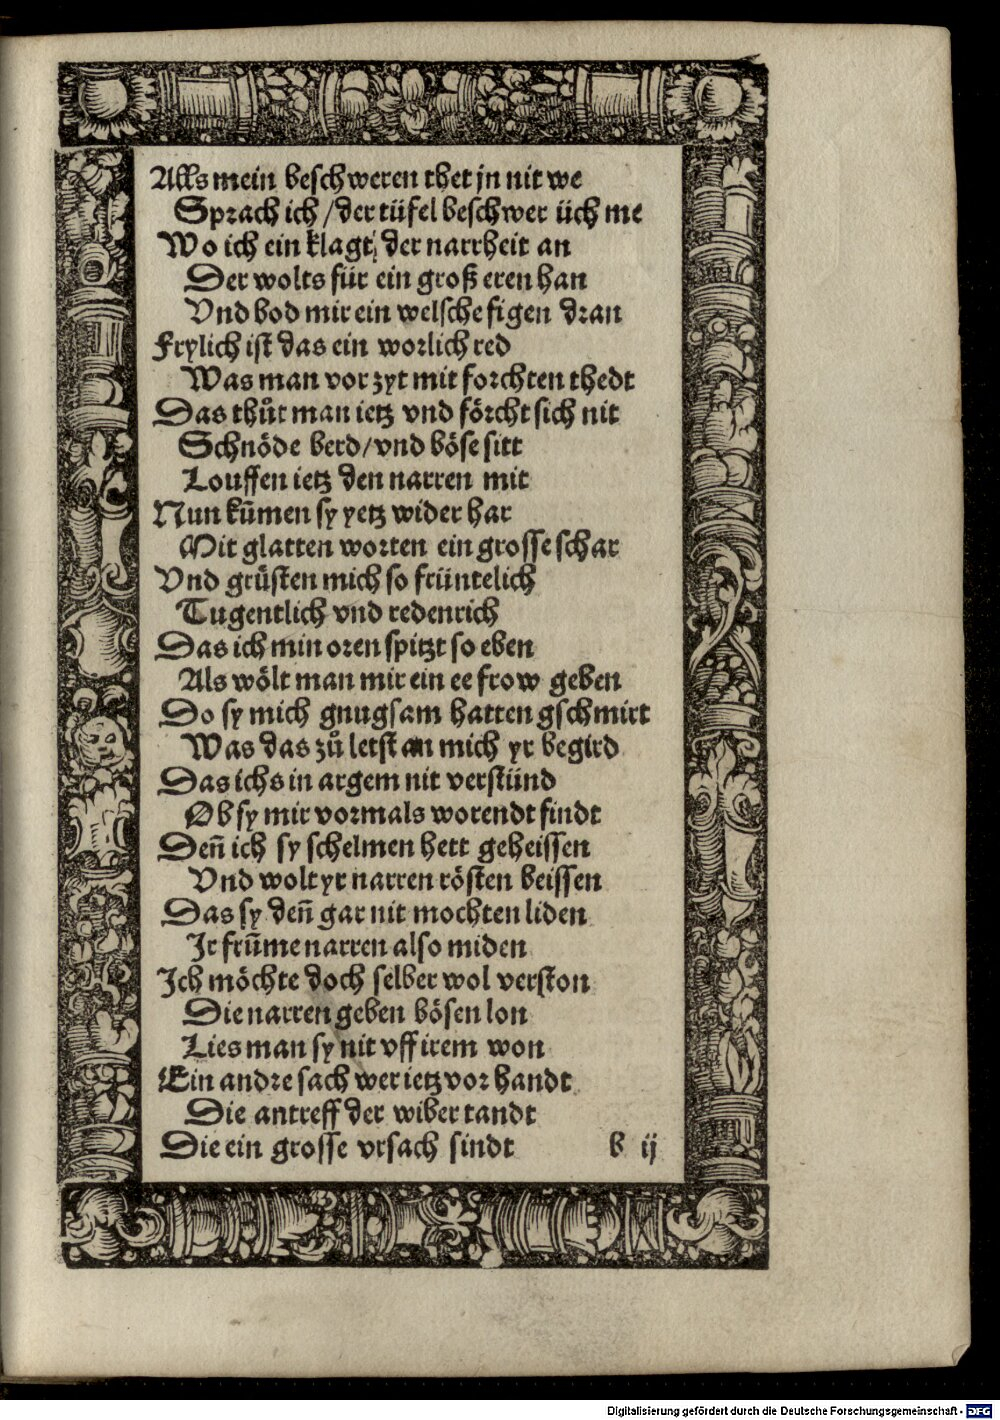 Alls mein beschweren thet jn nit we
Sprach ich / der tüfel beschwer üch me
Wo ich ein klagt / der narrheit an
Der wolts für ein groß eren han
Vnd bod mir ein welsche figen dran
Frylich ist das ein worlich red
Was man vor zyt mit forchten thedt
Das thůt man ietz vnd förcht sich nit
Schnöde berd / vnd böse sitt
Louffen ietz den narren mit
Nun kūmen sy yetz wider har
Mit glatten worten ein grosse schar
Vnd grüsten mich so früntelich
Tugentlich vnd redenrich
Das ich min oren spitzt so eben
Als wölt man mir ein ee frow geben
Do sy mich gnugsam hatten gschmirt
Was das zů letst an mich yr begird
Das ichs in argem nit verstünd
Ob sy mir vormals worendt findt
Deñ ich sy schelmen hett geheissen
Vnd wolt yr narren rösten beissen
Das sy deñ gar nit mochten liden
Ir frūme narren also miden
Ich möchte doch selber wol verston
Die narren geben bösen lon
Lies man sy nit vff irem won
Ein andre sach wer ietz vor handt
Die antreff der wiber tandt
Die ein grosse vrsach sindt b ij
Digitalisierung gefördert durch die Deutsche Forschungsgemeinschaft - DFG